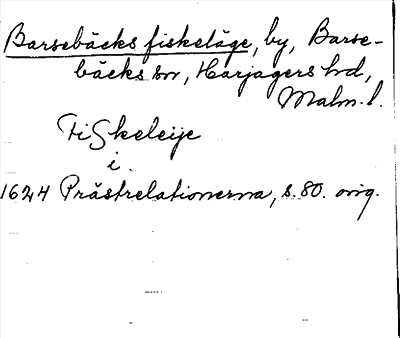 Barsebäcks fiskeläge, by, Barse-
bäcks sn, Harjagers hd,
Malm. l.
Fiskeleije
i
1624 Prästrelationerna, s. 80. orig.